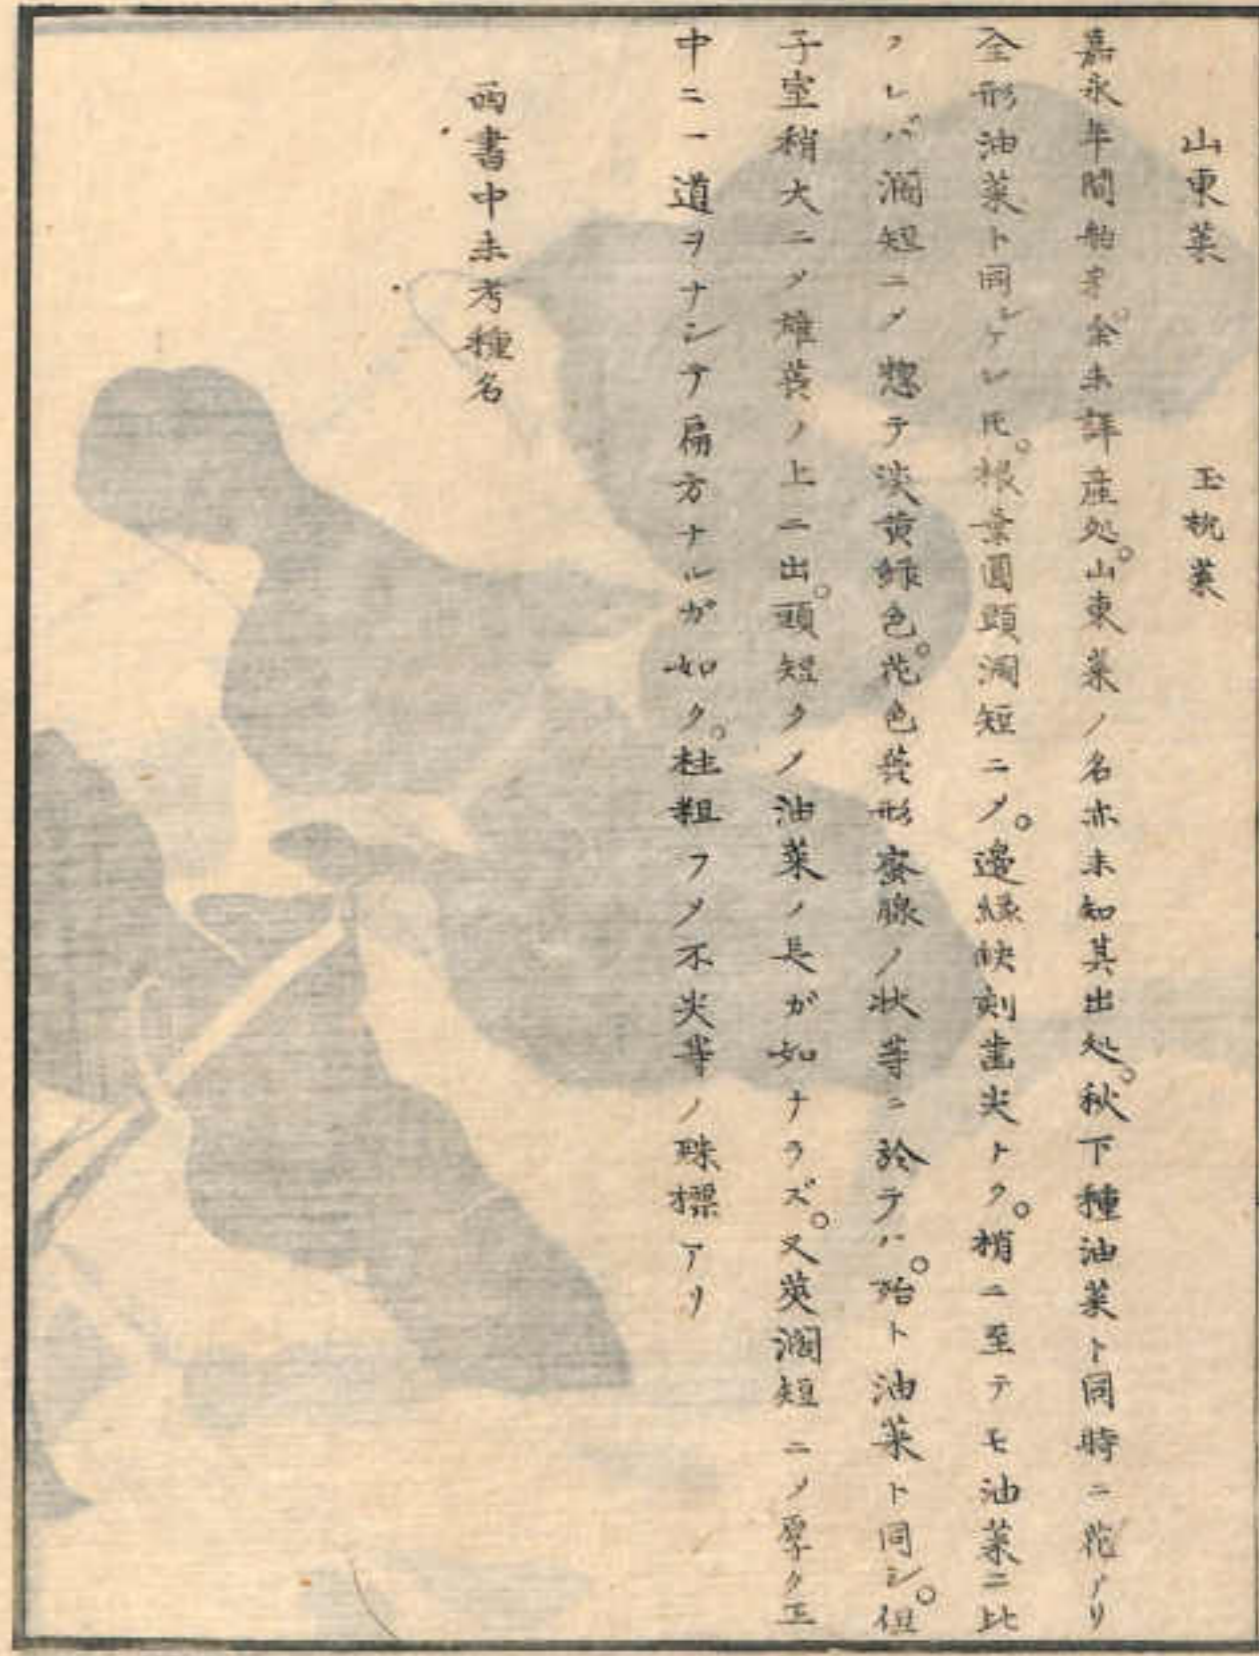 山東菜　玉杭菜
嘉永年間舶来。余未詳産処。山東菜ノ名亦未知其出処。秋下種油菜ト同時ニ花アリ
全形油菜ト同シケレ𪜈。根葉圓頭濶短ニ〆。邊縁缺刻齒尖トク。梢ニ至テモ油菜ニ比
フレバ濶短ニ〆惣テ淡黄緑色。花色蕋形蜜腺ノ状等ニ於テハ。殆ト油菜ト同シ。但
子室稍大ニ〆雄蕋ノ上ニ出。頭短クノ油菜ノ長ガ如ナラズ。又莢濶短ニ〆厚ク正
中ニ一道ヲナシテ扁方ナルガ如ク。柱粗フ〆不尖等ノ殊標アリ
両書中未考種名